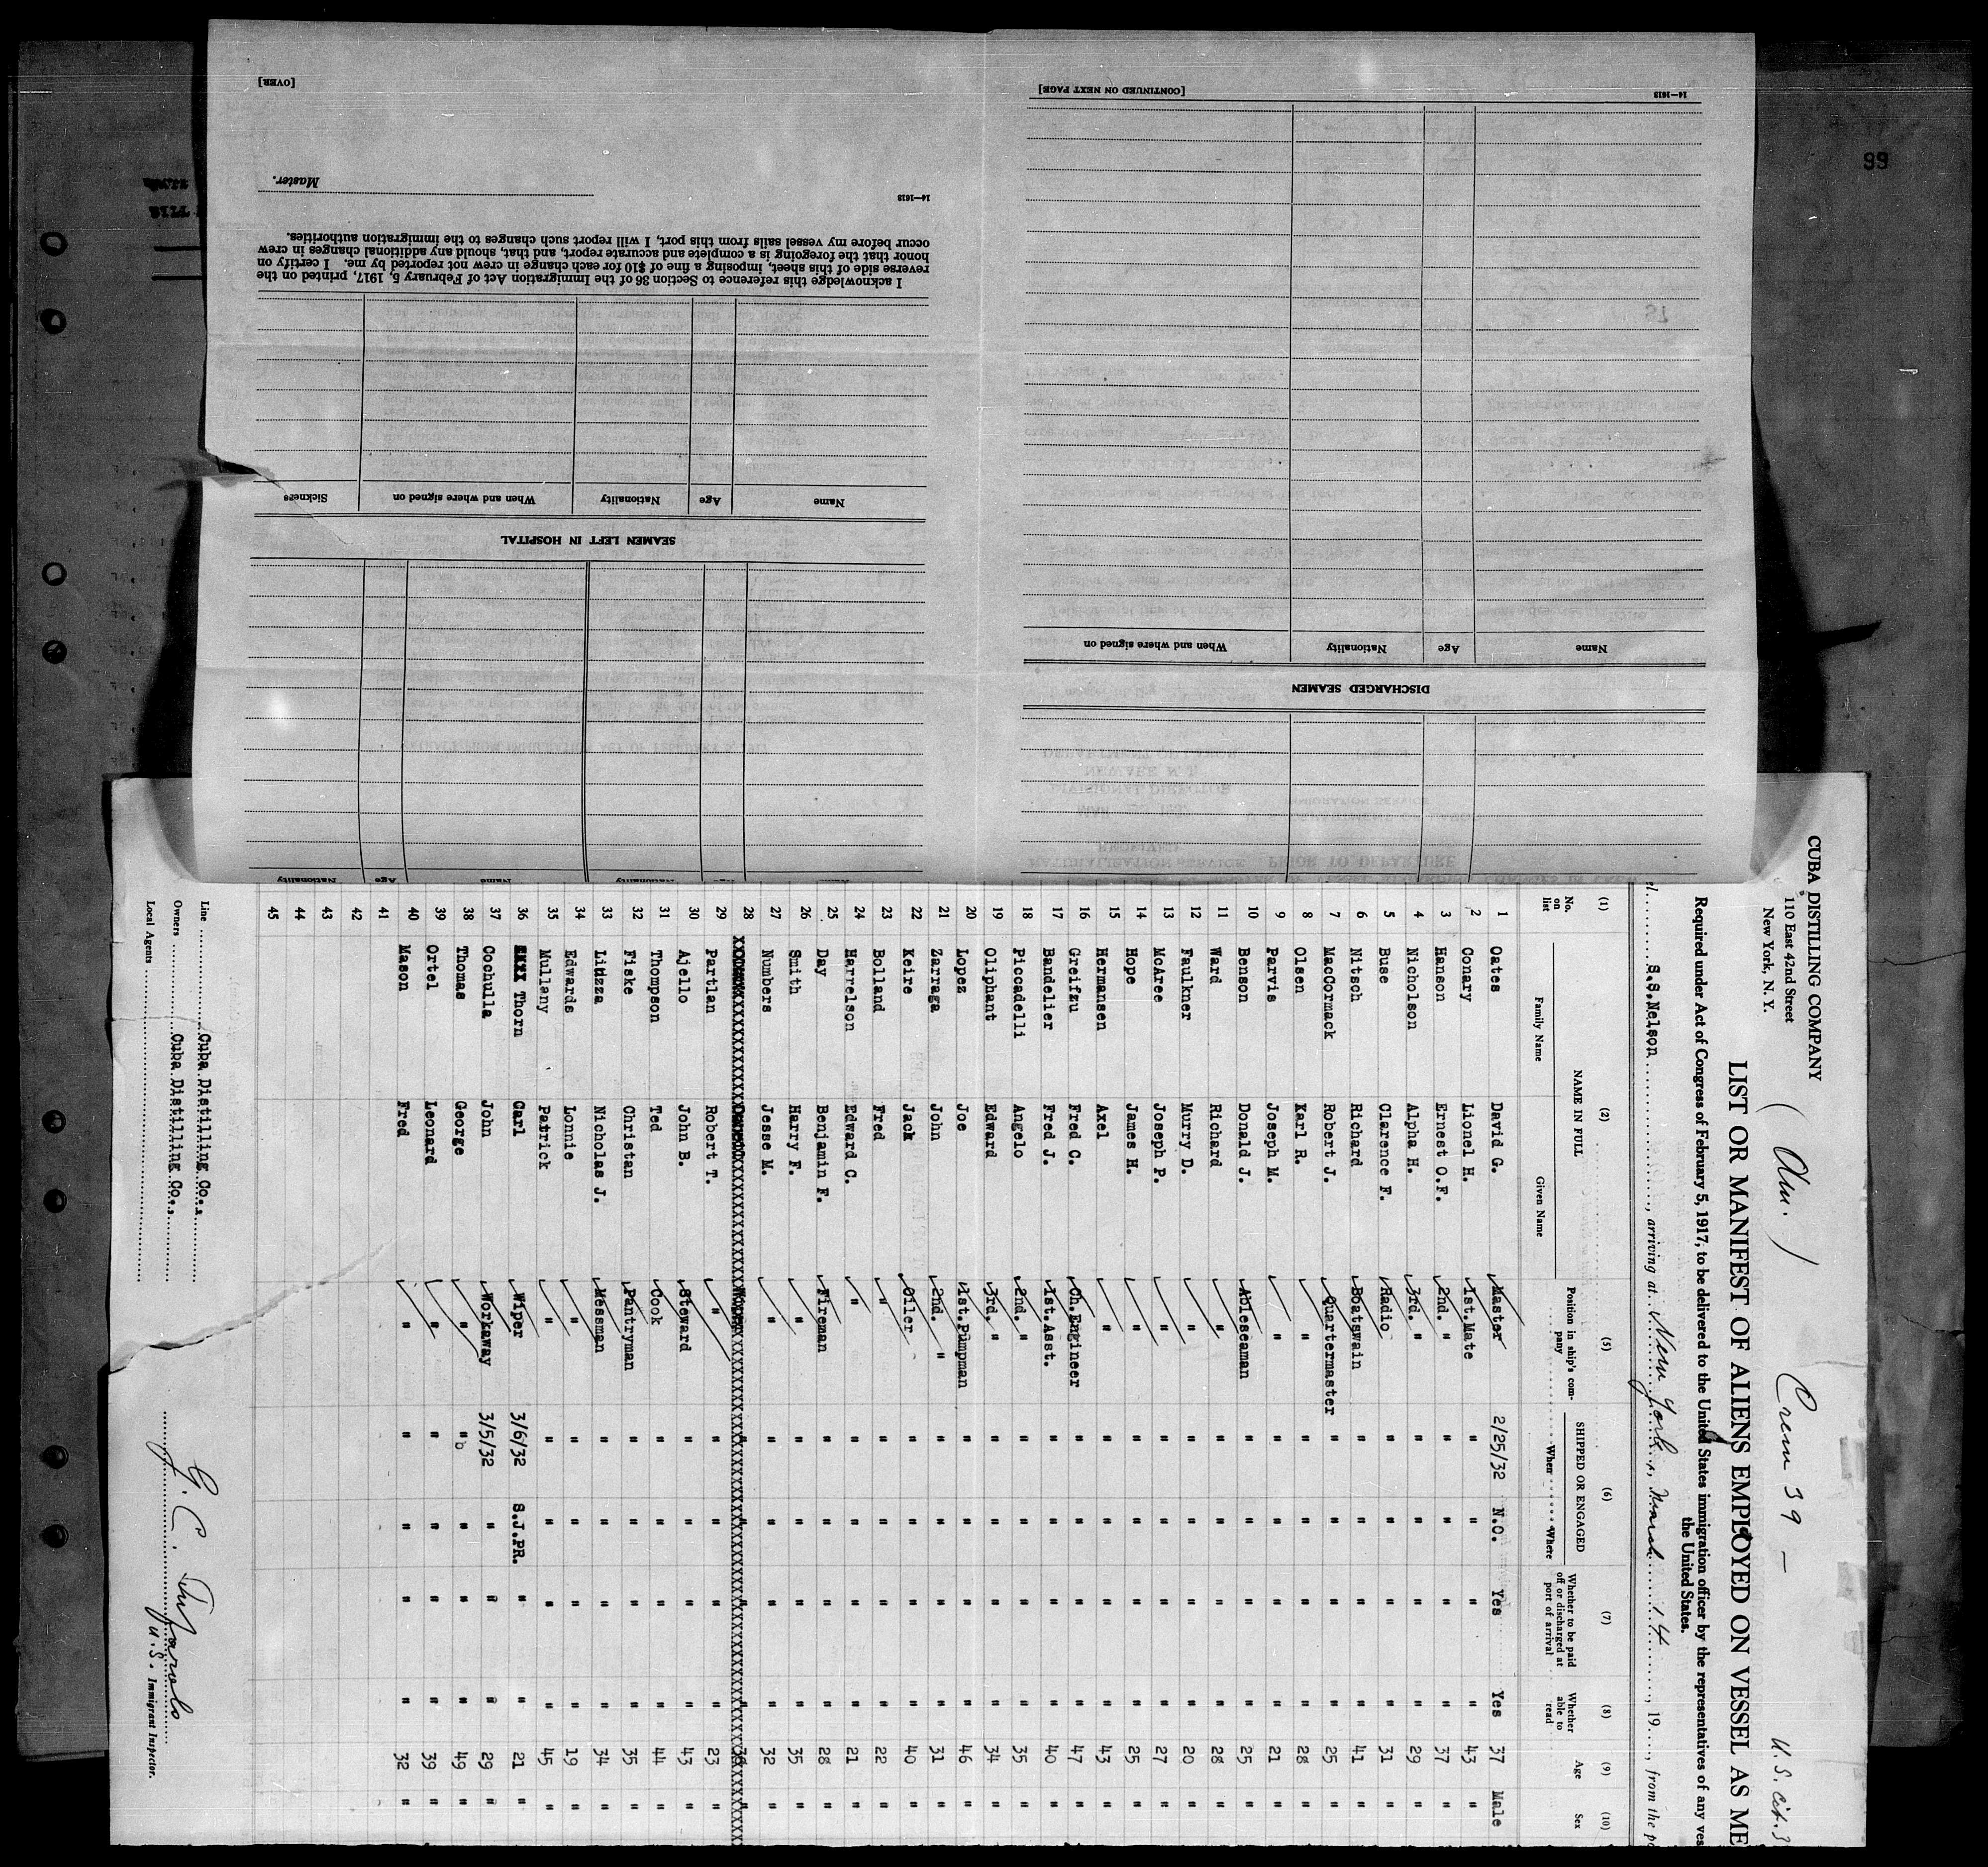 [OVER]
Master.
14—1613
I acknowledge this reference to Section 36 of the Immigration Act of February 5, 1917, printed on the
reverse side of this sheet, imposing a fine of $10 for each change in crew not reported by me. I certify on
honor that the foregoing is a complete and accurate report, and that, should any additional changes in crew
occur before my vessel sails from this port, I will report such changes to the immigration authorities.
Name Age Nationality When and where signed on Sickness
SEAMEN LEFT IN HOSPITAL
Name Age Nationality Name Age Nationality
[CONTINUED ON NEXT PAGE]
14—1613
Name Age Nationality When and where signed on
DISCHARGED SEAMEN
99
CUBA DISTILLING COMPANY
110 East 42nd Street
New York, N. Y.
Crew 39 —
U.S. Cit. 3
LIST OR MANIFEST OF ALIENS EMPLOYED ON VESSEL AS ME
Required under Act of Congress of February 5, 1917, to be delivered to the United States immigration officer by the representatives of any ves
the United States.
S.S.Nelson, arriving at New York, March 14, 19, from the po
(1) (2) (5) (6) (7) (8) (9) (10)
No. on list NAME IN FULL Family Name Given Name Position in ship's company SHIPPED OR ENGAGED When Where Whether to be paid off or discharged at port of arrival Whether able to read Age Sex
1 Oates David G. Master 2/25/32 N.O. Yes Yes 37 Male
2 Conary Lionel H. 1st.Mate " " " " 43 "
3 Hanson Ernest O.F. 2nd. " " " " " 37 "
4 Nicholson Alpha H. 3rd. " " " " " 29 "
5 Buse Clarence F. Radio " " " " 31 "
6 Nitsch Richard Boatswain " " " " 41 "
7 MacCormack Robert J. Quartermaster " " " " 25 "
8 Olsen Karl R. " " " " " 28 "
9 Parvis Joseph M. " " " " " 21 "
10 Benson Donald J. Ableseaman " " " " 25 "
11 Ward Richard " " " " " 28 "
12 Faulkner Murry D. " " " " " 20 "
13 McAree Joseph P. " " " " " 27 "
14 Hope James H. " " " " " 25 "
15 Hermansen Axel " " " " " 43 "
16 Greifzu Fred C. Ch.Engineer " " " " 47 "
17 Bandelier Fred J. 1st.Asst. " " " " 40 "
18 Piccadelli Angelo 2nd. " " " " " 35 "
19 Oliphant Edward 3rd. " " " " " 34 "
20 Lopez Joe 1st.Pumpman " " " " 46 "
21 Zarraga John 2nd. " " " " " 31 "
22 Keire Jack Oiler " " " " 40 "
23 Bolland Fred " " " " " 22 "
24 Harrelson Edward C. " " " " " 21 "
25 Day Benjamin F. Fireman " " " " 28 "
26 Smith Harry F. " " " " " 35 "
27 Numbers Jesse M. " " " " " 32 "
28
29 Partlan Robert T. " " " " " 23 "
30 Ajello John B. Steward " " " " 43 "
31 Thompson Ted Cook " " " " 44 "
32 Fiske Christan Pantryman " " " " 35 "
33 Litzza Nicholas J. Messman " " " " 34 "
34 Edwards Lonnie " " " " " 19 "
35 Mullany Patrick " " " " " 45 "
36 Thorn Carl Wiper 3/6/32 S.J.PR. " " 21 "
37 Cochulla John Workaway 3/5/32 " " " 29 "
38 Thomas George " " " " " 49 "
39 Ortel Leonard " " " " " 39 "
40 Mason Fred " " " " " 32 "
41
42
43
44
45
Line Cuba Distilling Co.,
Owners Cuba Distilling Co.,
Local Agents
U.S. Immigrant Inspector.